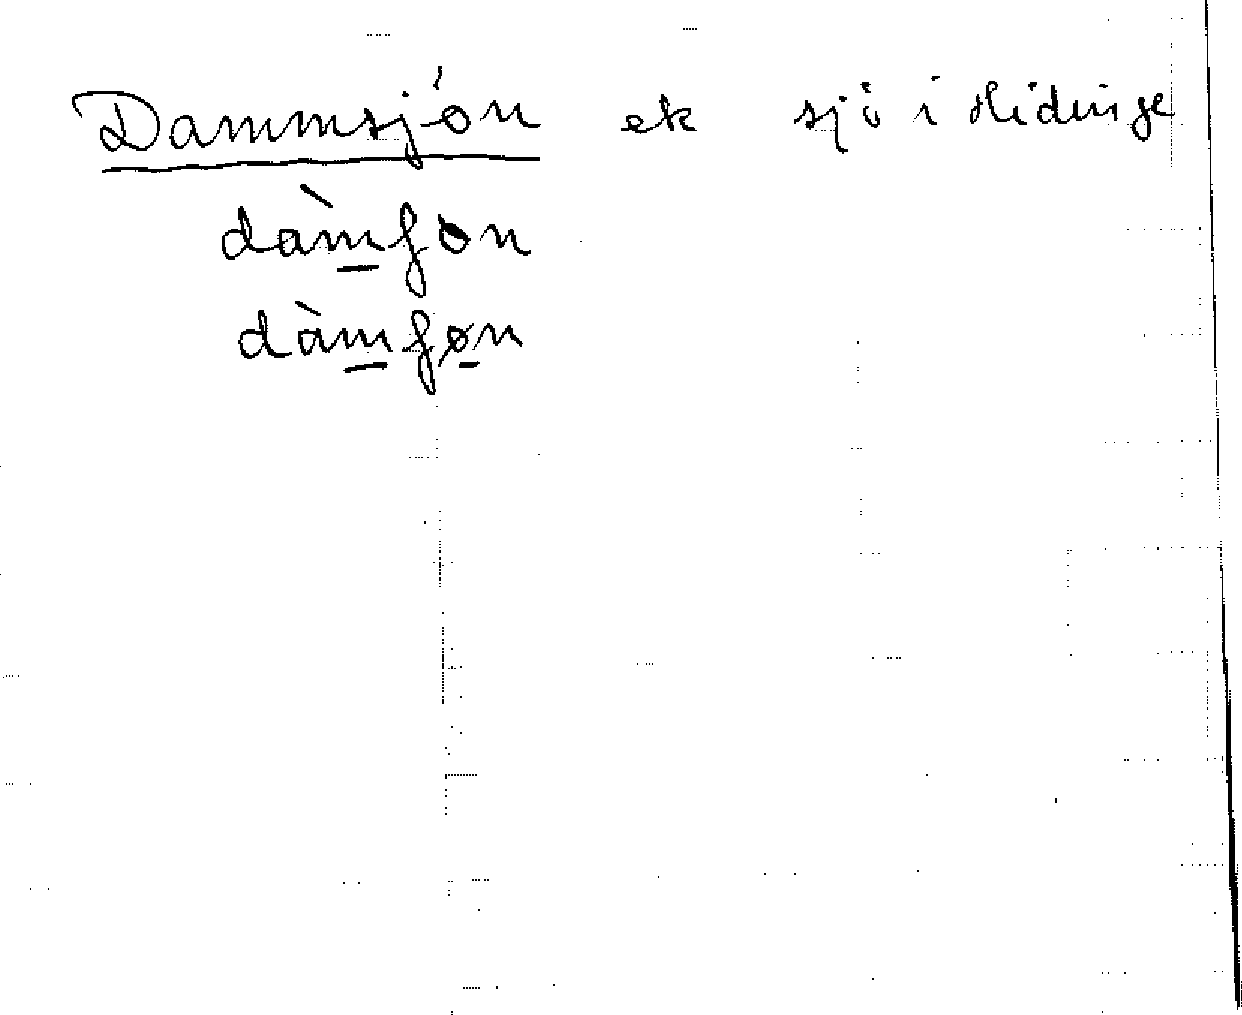 Dammsjön ek sjö i Hidinge
dàmʃon
dàmʃøn